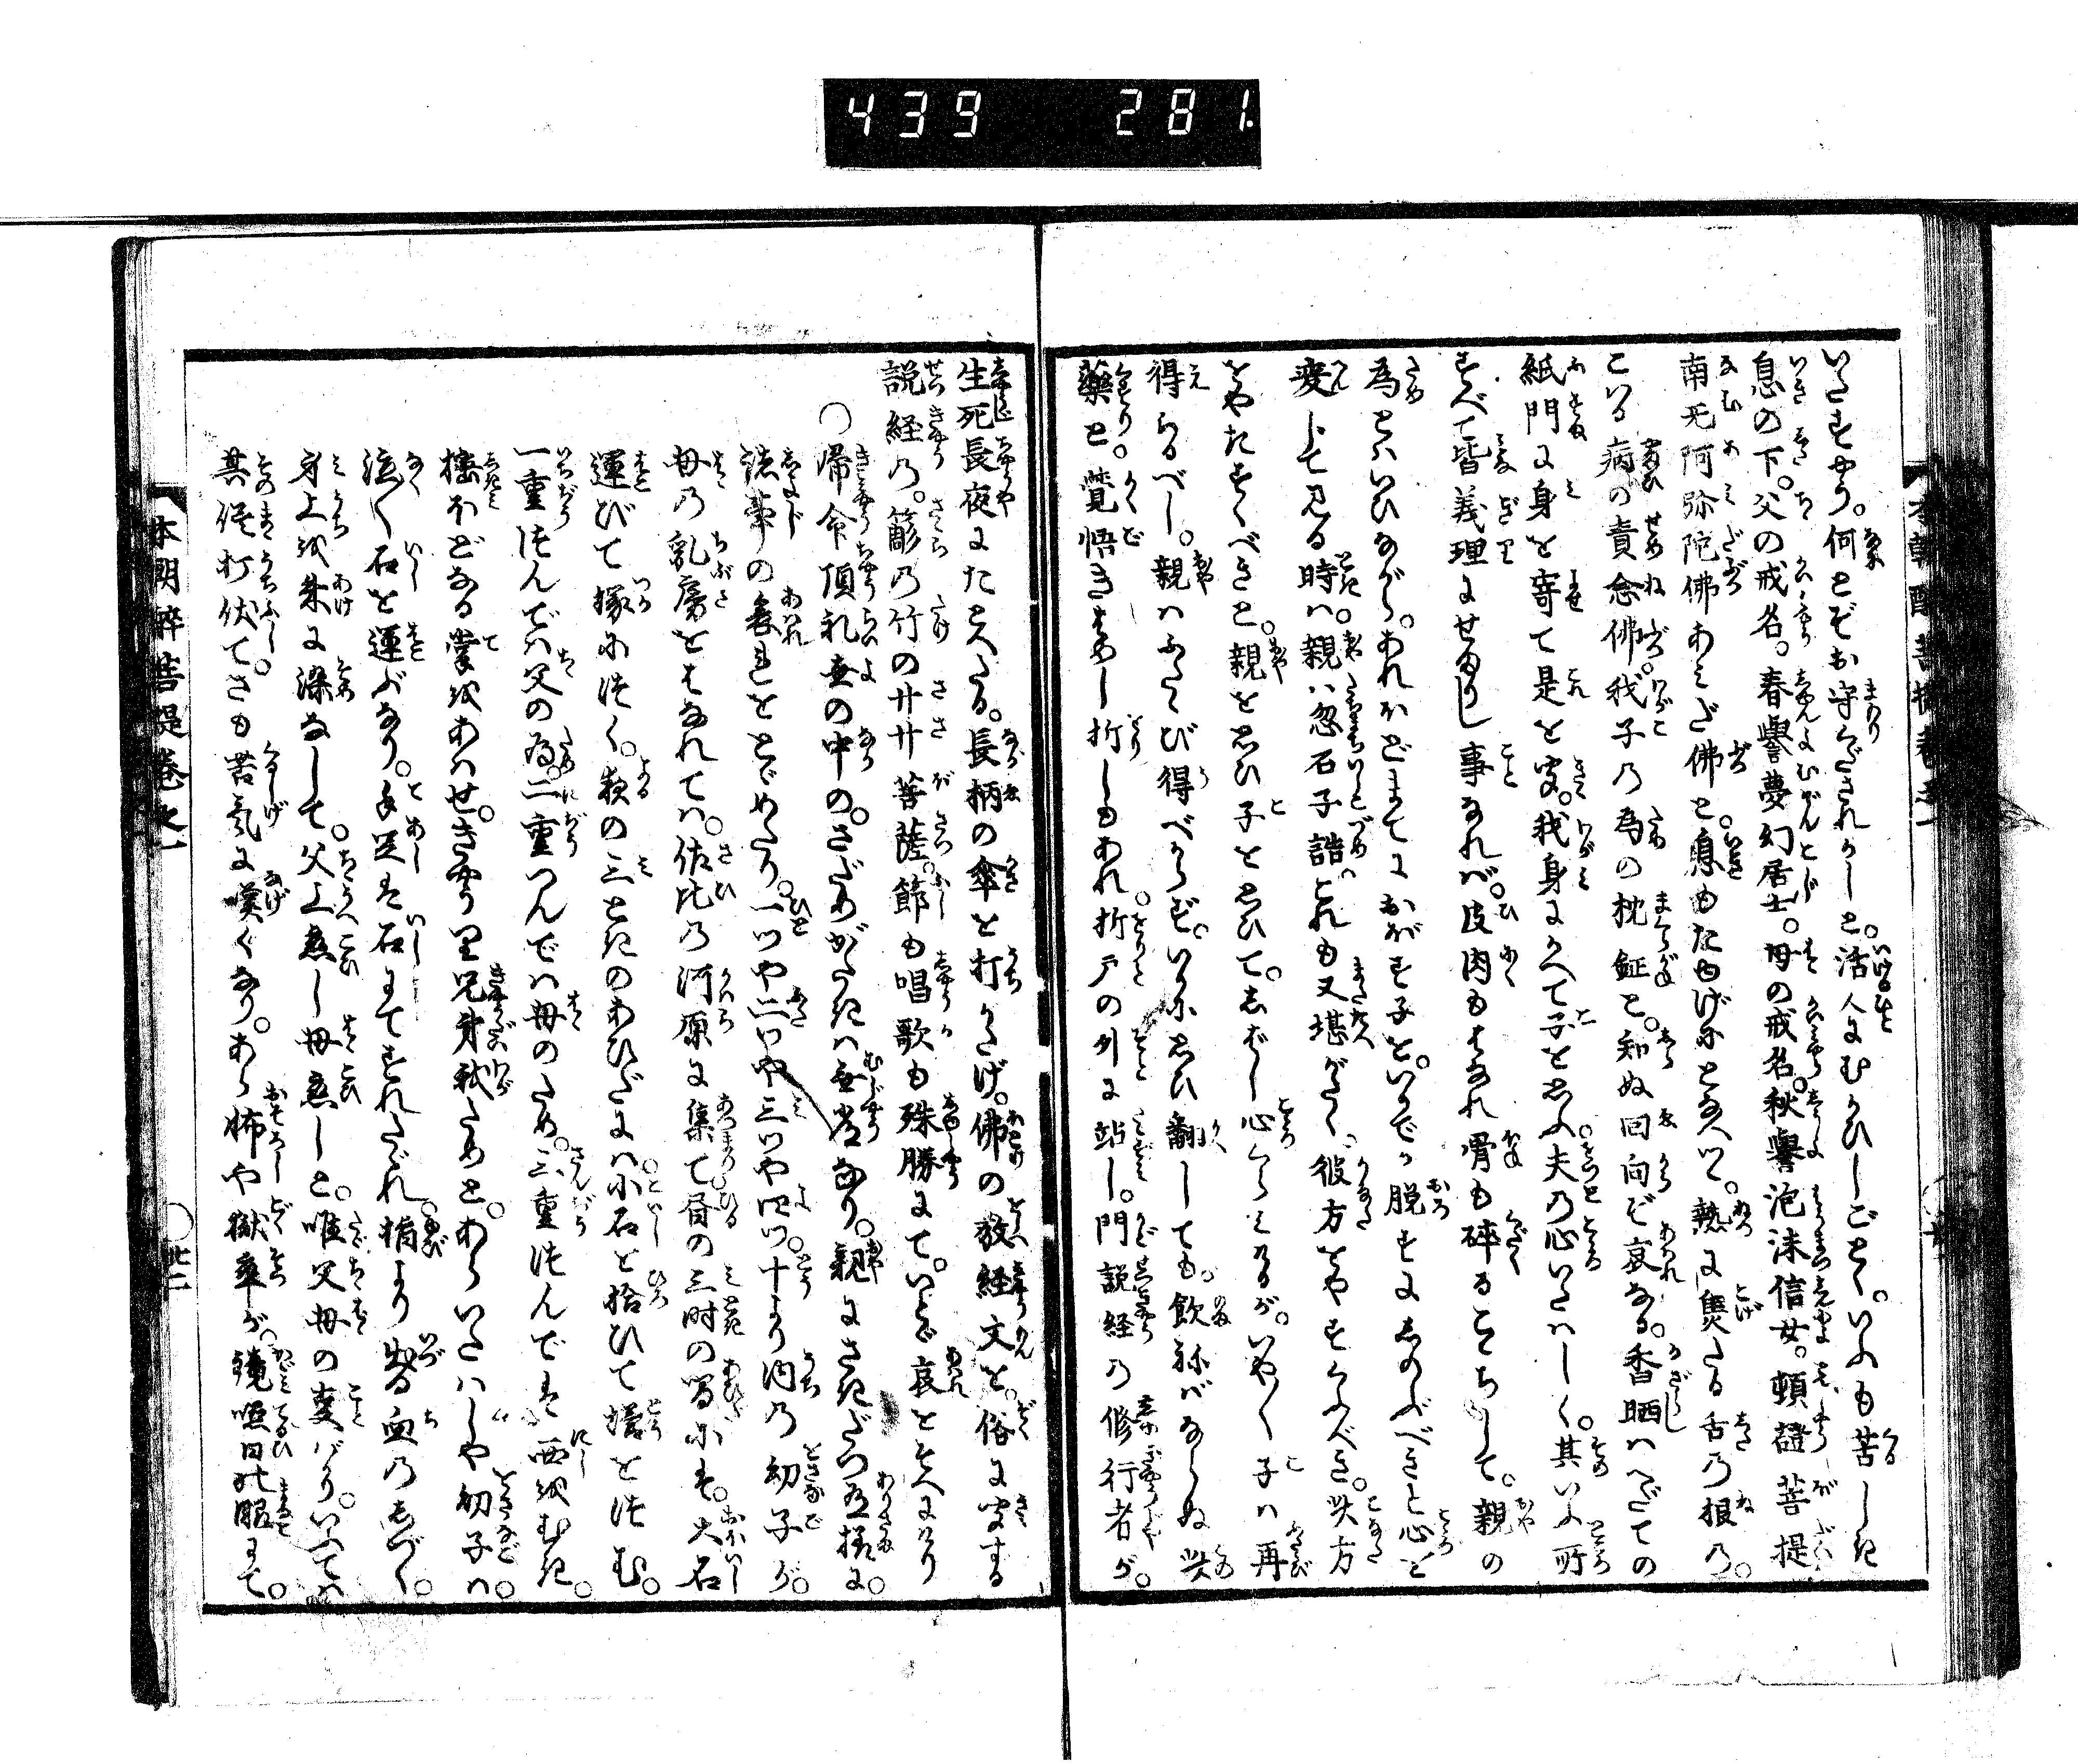 439 281.
いたすやう。何とぞお守くだされかしと。活人にむかひしごとく。いふも苦しき
息の下。父の戒名。春誉夢幻居士。母の戒名。秋誉泡沫信女。頓證菩提
南无阿弥陀佛あみだ佛と。息もたゆげにとなへつ。熱に燠たる舌の根の。
こはる病の責念佛。我子の為の枕鉦と。知ぬ回向ぞ哀なる。香晒はへだての
紙門に身を寄て是を聞。我身にかへて子を思ふ夫の心いたはしく。其いふ所
すべて皆義理にせまりし事なれば。皮肉もはなれ骨も砕るこゝちして。親の
為とはいひながら。あれほどまでにおぼす子を。いかでか脱すにしのぶべきと心を
変じて見る時は。親は忽石子詰。これも又堪がたく。彼方をやすくふべき。此方
をやたすくべきと。親を思ひ子を思ひて。しばし心くらみなるが。いや〳〵子は再
得らるべし。親はふたゝび得べからず。いかに思ひ翻しても。飲ねばならぬ此
薬と。覚悟きはめし折しもあれ。折戸の外に站し。門説経の修行者が。
生死長夜にたとへたる。長柄の傘を打かたげ。佛の教経文を。俗に聞する
説経の。簓の竹のササ菩薩。節も唱歌も殊勝にて。いとゞ哀をそへにけり
〇帰命頂礼世の中の。さだめがたきは無常なり。親にさきだつ有様に。
諸事の哀をとゞめたり。一ツや二ツや三ツや四ツ。十より内の幼子が。
母の乳房をはなれては。佐比の河原に集て昼の三時の間には。大石
運びて塚につく。夜の三ときのあひだには。小石を拾ひて塔を積む。
一重つんでは父の為。二重つんでは母のため。三重つんでは西をむき。
樒ほどなる掌をあはせ。きやう里兄弟我ためと。あらいたはしや幼子は。
泣〳〵石を運ぶなり。手足は石にてすれたゞれ。指より出る血のしづく。
身上を朱に染なして。父上恋し母恋しと。唯父母の事ばかり。いふては
其侭打伏て。さも苦気に嘆くなり。あら怖や獄卒が。鏡照日の眼にて。
本朝酔菩提巻之一 〇廿二